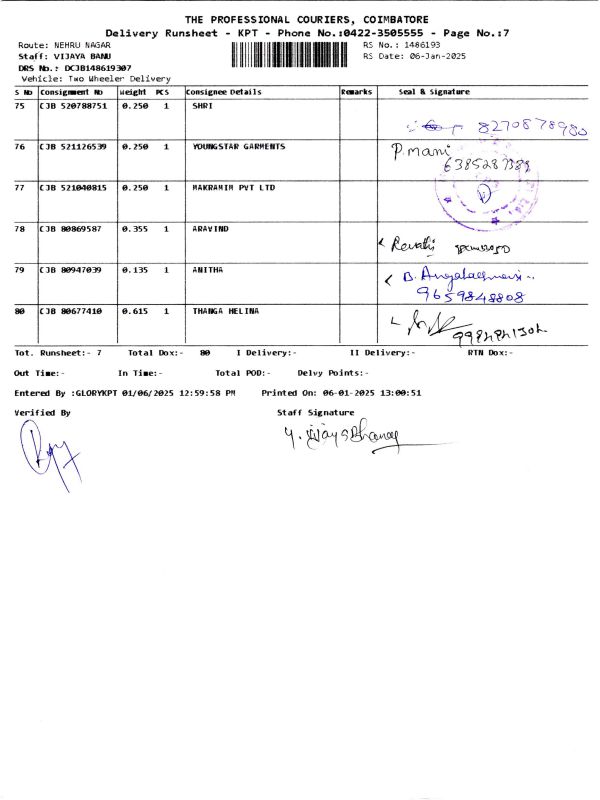 THE PROFESSIONAL COURIERS, COIMBATORE
Delivery Runsheet - KPT - Phone No.:0422-3505555 - Page No.:7
Route: NEHRU NAGAR RS No.: 1486193
Staff: VIJAYA BANU RS Date: 06-Jan-2025
DRS No.: DCJB148619307
Vehicle: Two Wheeler Delivery
S No Consignment No Weight PCS Consignee Details Remarks Seal & Signature
75 CJB 520788751 0.250 1 SHRI
8270878980
76 CJB 521126539 0.250 1 YOUNGSTAR GARMENTS P.mani
6385287389
77 CJB 521040815 0.250 1 MAKRAMIM PVT LTD
78 CJB 80869587 0.355 1 ARAVIND
Revathi
79 CJB 80947039 0.135 1 ANITHA
9659848808
80 CJB 80677410 0.615 1 THANGA HELINA
Tot. Runsheet:- 7 Total Dox:- 80 I Delivery:- II Delivery:- RTN Dox:-
Out Time:- In Time:- Total POD:- Delvy Points:-
Entered By :GLORYKPT 01/06/2025 12:59:58 PM Printed On: 06-01-2025 13:00:51
Verified By Staff Signature